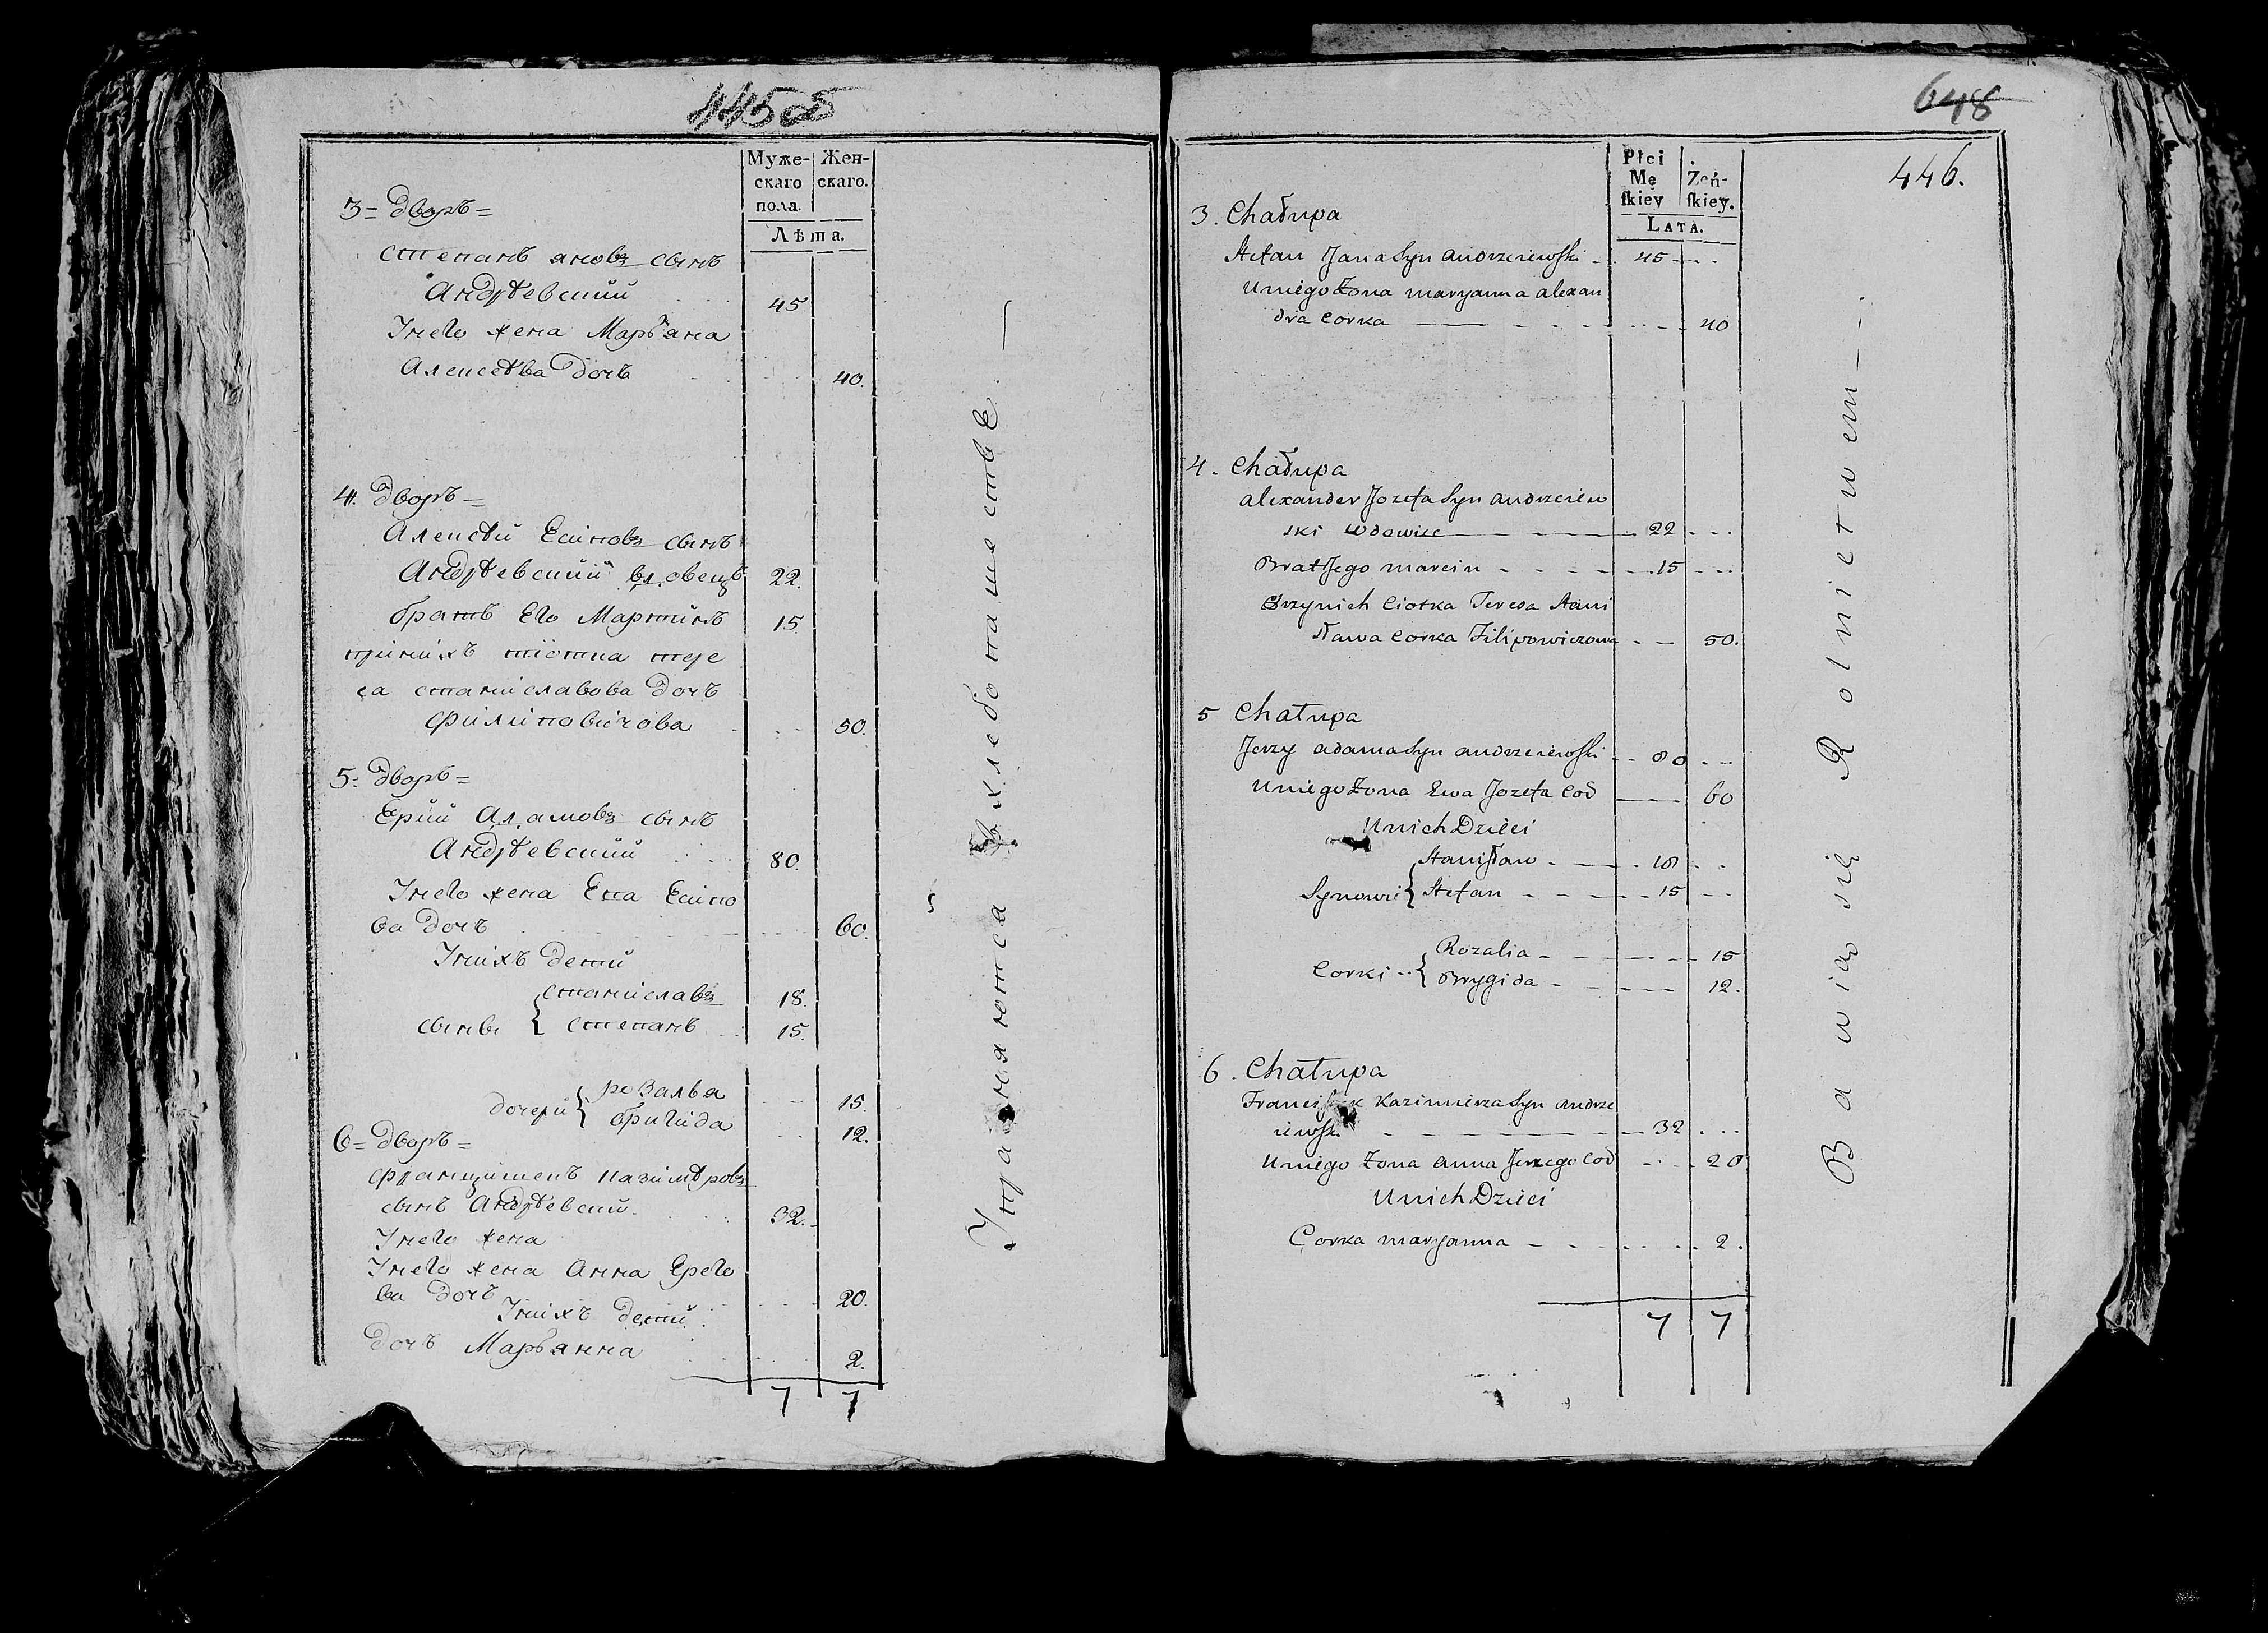 445 об
Муже- Жен-
скаго скаго.
пола.
Лѣта.
3= дворъ=
степанъ яновъ сынъ
Андрѣевский 45
Унего жена Марьяна
Алексѣва дочь 40.
4. дворъ=
Алексѣй Есиповъ сынъ
Андрѣевский вдовецъ 22.
братъ Его Мартинъ 15.
принихъ тіотка тере
са станиславова дочь
филиповичова 50.
5= дворъ=
Ерий Адамовъ сынъ
Андрѣевский 80.
Унего жена Ева Есипо
ва дочь 60.
Унихъ дети
станиславъ 18.
сыны { степанъ 15.
дочери { розалья 15.
бригида 12.
6= дворъ=
францишекъ казимѣровъ
сынъ Андрѣевский. 32.
Унего жена
Унего жена Анна Ерего
ва дочь 20.
Унихъ дети.
дочь Марьянна 2.
7 7
Упражняются в хлебопашестве. —
648
446.
Płci
Mę Żeń-
ſkiey ſkiey.
LATA.
3. Chałupa
Stefan Jana Syn Andrzeiewski 45
Uniego Żona Maryanna Alexan
dra Corka 40
4. Chałupa
Alexander Jozefa Syn Andrzeiew
ski Wdowiec 22
Brat Jego Marcin 15
Przynich Ciotka Teresa Stani
sława Corka Filipowiczowa 50.
5 Chałupa
Jerzy Adama Syn Andrzeiewski 80
Uniego Żona Ewa Jozefa Cod 60
Unich Dzieci
Stanisław 18
Synowie { Stefan 15
Rozalia 15
Corki { Brygida 12.
6. Chałupa
Franciszek Kazimierza Syn Andrze
iewski 32
Uniego Żona Anna Jerzego Cod 20
Unich Dzieci
Corka Maryanna 2.
7 7
Bawią się Rolnictwem —